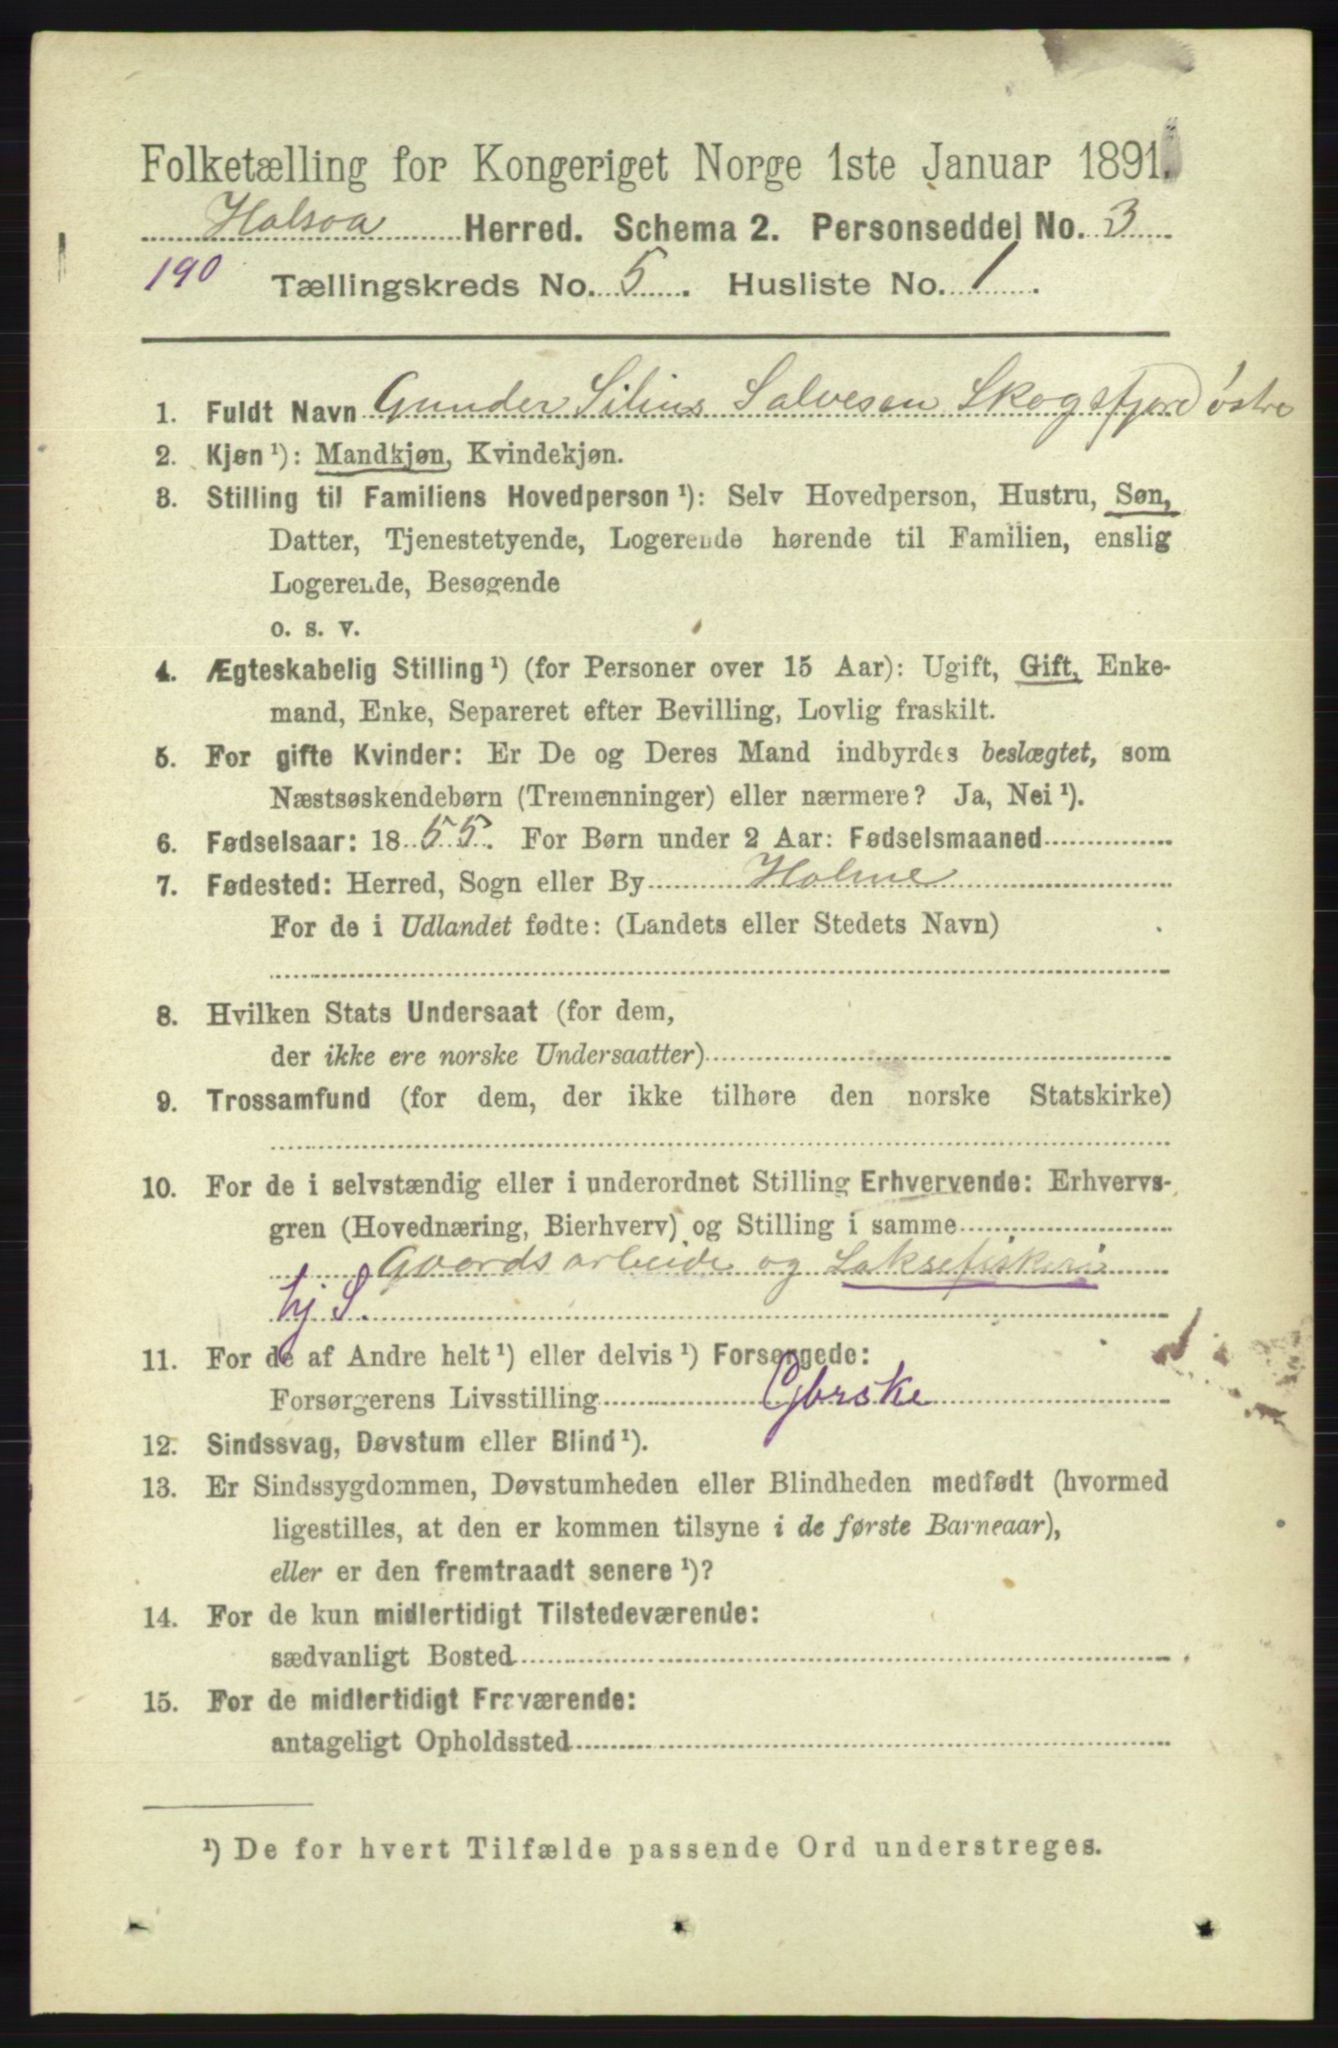 Folketælling for Kongeriget Norge 1ste Januar 1891.
Halsaa Herred. Schema 2. Personseddel No. 3
190 Tællingskreds No. 5. Husliste No. 1.
1. Fuldt Navn Gunder Silius Salvesen Skogsfjord østre
2. Kjøn ¹): Mandkjøn, Kvindekjøn.
3. Stilling til Familiens Hovedperson ¹): Selv Hovedperson, Hustru, Søn,
Datter, Tjenestetyende, Logerende hørende til Familien, enslig
Logerende, Besøgende
o. s. v.
4. Ægteskabelig Stilling ¹) (for Personer over 15 Aar): Ugift, Gift, Enke-
mand, Enke, Separeret efter Bevilling, Lovlig fraskilt.
5. For gifte Kvinder: Er De og Deres Mand indbyrdes beslægtet, som
Næstsøskendebørn (Tremenninger) eller nærmere? Ja, Nei ¹).
6. Fødselsaar: 1855. For Børn under 2 Aar: Fødselsmaaned
7. Fødested: Herred, Sogn eller By Holme
For de i Udlandet fødte: (Landets eller Stedets Navn)
8. Hvilken Stats Undersaat (for dem,
der ikke ere norske Undersaatter)
9. Trossamfund (for dem, der ikke tilhøre den norske Statskirke)
10. For de i selvstændig eller i underordnet Stilling Erhvervende: Erhvervs-
gren (Hovednæring, Bierhverv) og Stilling i samme
Gaardsarbeide og Laksefiskeri
hj S.
11. For de af Andre helt ¹) eller delvis ¹) Forsørgede:
Forsørgerens Livsstilling
12. Sindssvag, Døvstum eller Blind ¹).
13. Er Sindssygdommen, Døvstumheden eller Blindheden medfødt (hvormed
ligestilles, at den er kommen tilsyne i de første Barneaar),
eller er den fremtraadt senere ¹)?
14. For de kun midlertidigt Tilstedeværende:
sædvanligt Bosted
15. For de midlertidigt Fraværende:
antageligt Opholdssted
¹) De for hvert Tilfælde passende Ord understreges.